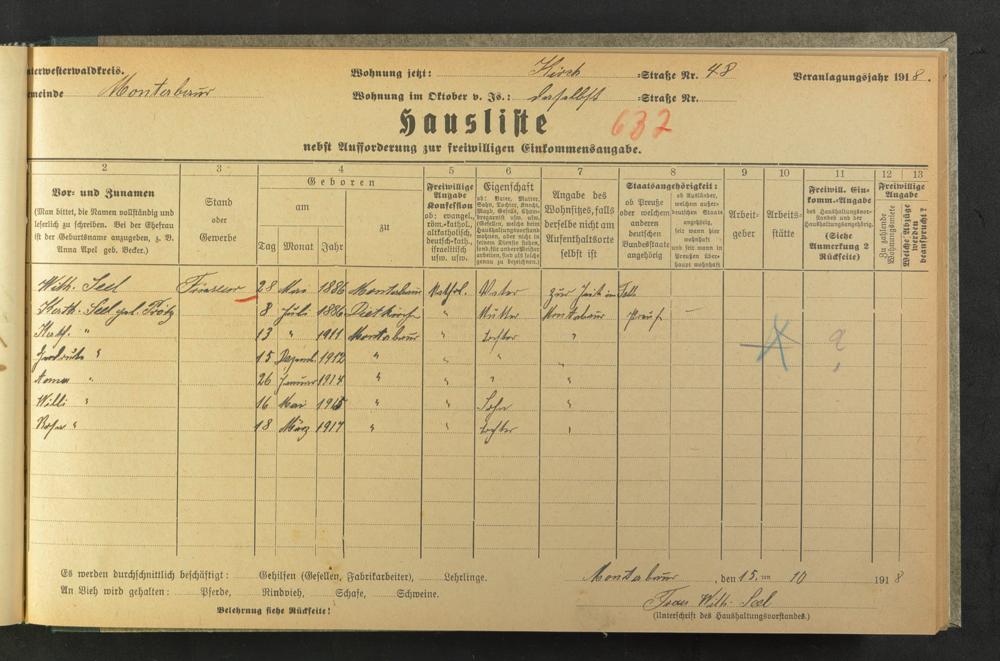 nterwesterwaldkreis.
Wohnung jetzt: Kirch =Straße Nr. 48
Veranlagungsjahr 1918.
meinde Montabaur
Wohnung im Oktober v. Js.: daselbst =Straße Nr.
Hausliste 637
nebst Aufforderung zur freiwilligen Einkommensangabe.
2 3 4 5 6 7 8 9 10 11 12 13
Vor- und Zunamen
(Man bittet, die Namen vollständig und
leserlich zu schreiben. Bei der Ehefrau
ist der Geburtsname anzugeben, z. B.
Anna Apel geb. Becker.)
Stand
oder
Gewerbe
Geboren
am
zu
Tag Monat Jahr
Freiwillige
Angabe
Konfession
ob: evangel.,
röm.-kathol.,
altkatholisch,
deutsch-kath.,
israelitisch
usw. usw.
Eigenschaft
ob: Vater, Mutter,
Sohn, Tochter, Knecht,
Magd, Geselle, Cham-
bregarnist usw. usw.
(Gesellen, welche beim
Haushaltungsvorstand
wohnen, aber nicht in
seinem Dienste stehen,
sond. für andere Meister
arbeiten, sind als solche
genau zu bezeichnen).
Angabe des
Wohnsitzes, falls
derselbe nicht am
Aufenthaltsorte
selbst ist
Staatsangehörigkeit:
ob Preuße
oder welchem
anderen
deutschen
Bundesstaate
angehörig
ob Ausländer,
welchem außer-
deutschen Staate
angehörig,
seit wann hier
wohnhaft
und seit wann in
Preußen über-
haupt wohnhaft
Arbeit-
geber
Arbeits-
stätte
Freiwill. Ein-
komm.-Angabe
des Haushaltungsvor-
standes und der
Haushaltungsangehörig.
(Siehe
Anmerkung 2
Rückseite)
Freiwillige
Angabe
Zu zahlende
Wohnungsmiete
Welche Abzüge
werden
beansprucht?
Wilh. Seel 28 Mai 1886 Montabaur Kathol. Vater zur Zeit im Felde
Kath. Seel geb. 8 Juli 1886 " Mutter Montabaur Preuß. —
Kath. " 13 " 1911 Montabaur " Tochter "
Gertrude " 15 Dezemb. 1912 " " " "
Anna " 26 Januar 1914 " " " "
Willi " 16 Mai 1915 " " Sohn "
Rosa " 18 März 1917 " " Tochter "
Es werden durchschnittlich beschäftigt: Gehilfen (Gesellen, Fabrikarbeiter), Lehrlinge.
An Vieh wird gehalten: Pferde, Rindvieh, Schafe, Schweine.
Belehrung siehe Rückseite!
Montabaur, den 15. ten 10 1918
Frau Wilh. Seel
(Unterschrift des Haushaltungsvorstandes.)